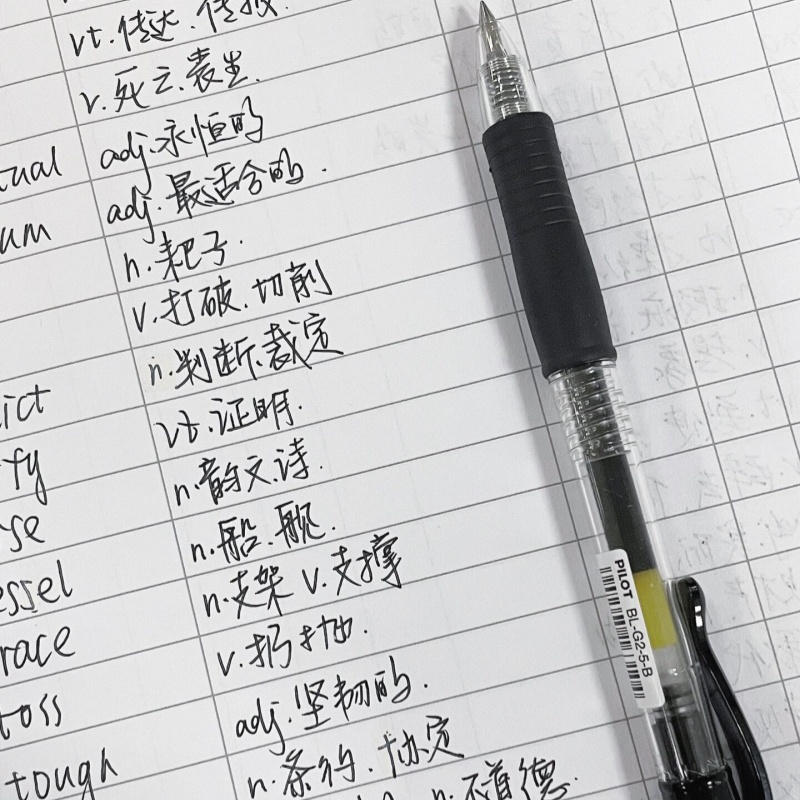 vt.传达.传报
v.死亡.衰生.
tual adj.永恒的
um adj.最适合的.
n.耙子.
v.打破.切削
ict n.判断.裁定
fy vt.证明.
se n.韵文.诗.
essel n.船.舰.
race n.支架 v.支撑
toss v.扔抛.
tough adj.坚韧的.
n.条约.协定
n.不道德.
PILOT BL-G2-5-B